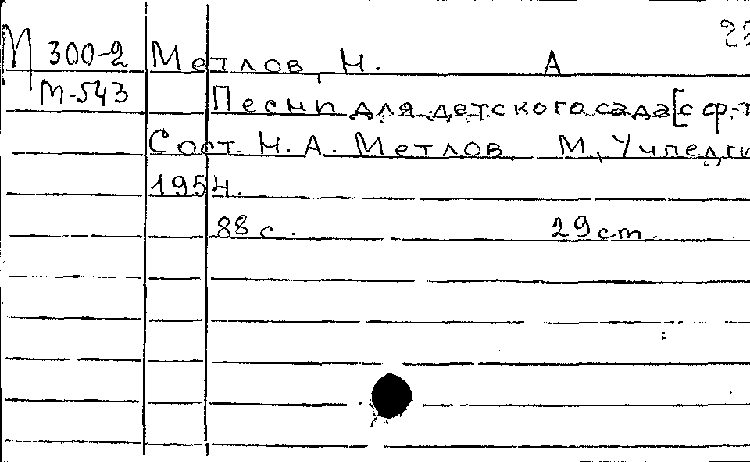 М 300-2 Метлов, Н. А
М-543 Песни для детского сада [с ф.-
Сост. Н. А. Метлов М, Учпедги
1954.
88 с. 29 cm